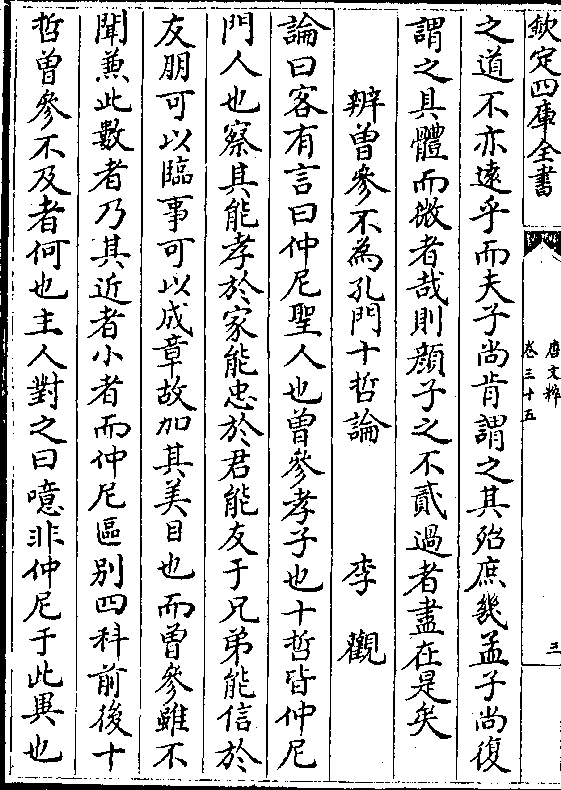 欽定四庫全書
唐文粹
卷三十五
三
之道不亦遠乎而夫子尚肯謂之其殆庶幾孟子尚復
謂之具體而微者哉則顔子之不貳過者盡在是矣
辨曾參不為孔門十哲論 李觀
論曰客有言曰仲尼聖人也曾參孝子也十哲皆仲尼
門人也察其能孝於家能忠於君能友于兄弟能信於
友朋可以臨事可以成章故加其美目也而曾參雖不
聞兼此數者乃其近者小者而仲尼區別四科前後十
哲曾參不及者何也主人對之曰噫非仲尼于此異也